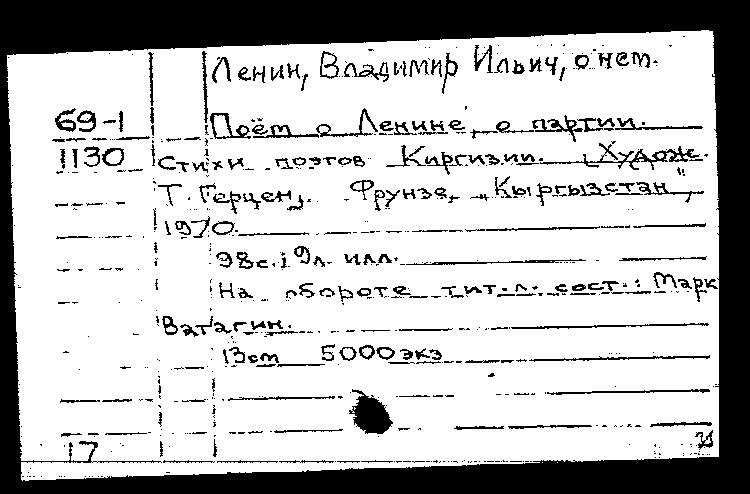 Ленин, Владимир Ильич, о нем.
69-1 Поём о Ленине, о партии.
1130 Стихи поэтов Киргизии. [Худож.
Т. Герцен]. Фрунзе, „Кыргызстан",
1970.
98с. i 9л. илл.
На обороте тит. л. сост.: Марк
Ватагин.
13см 5000 экз
17